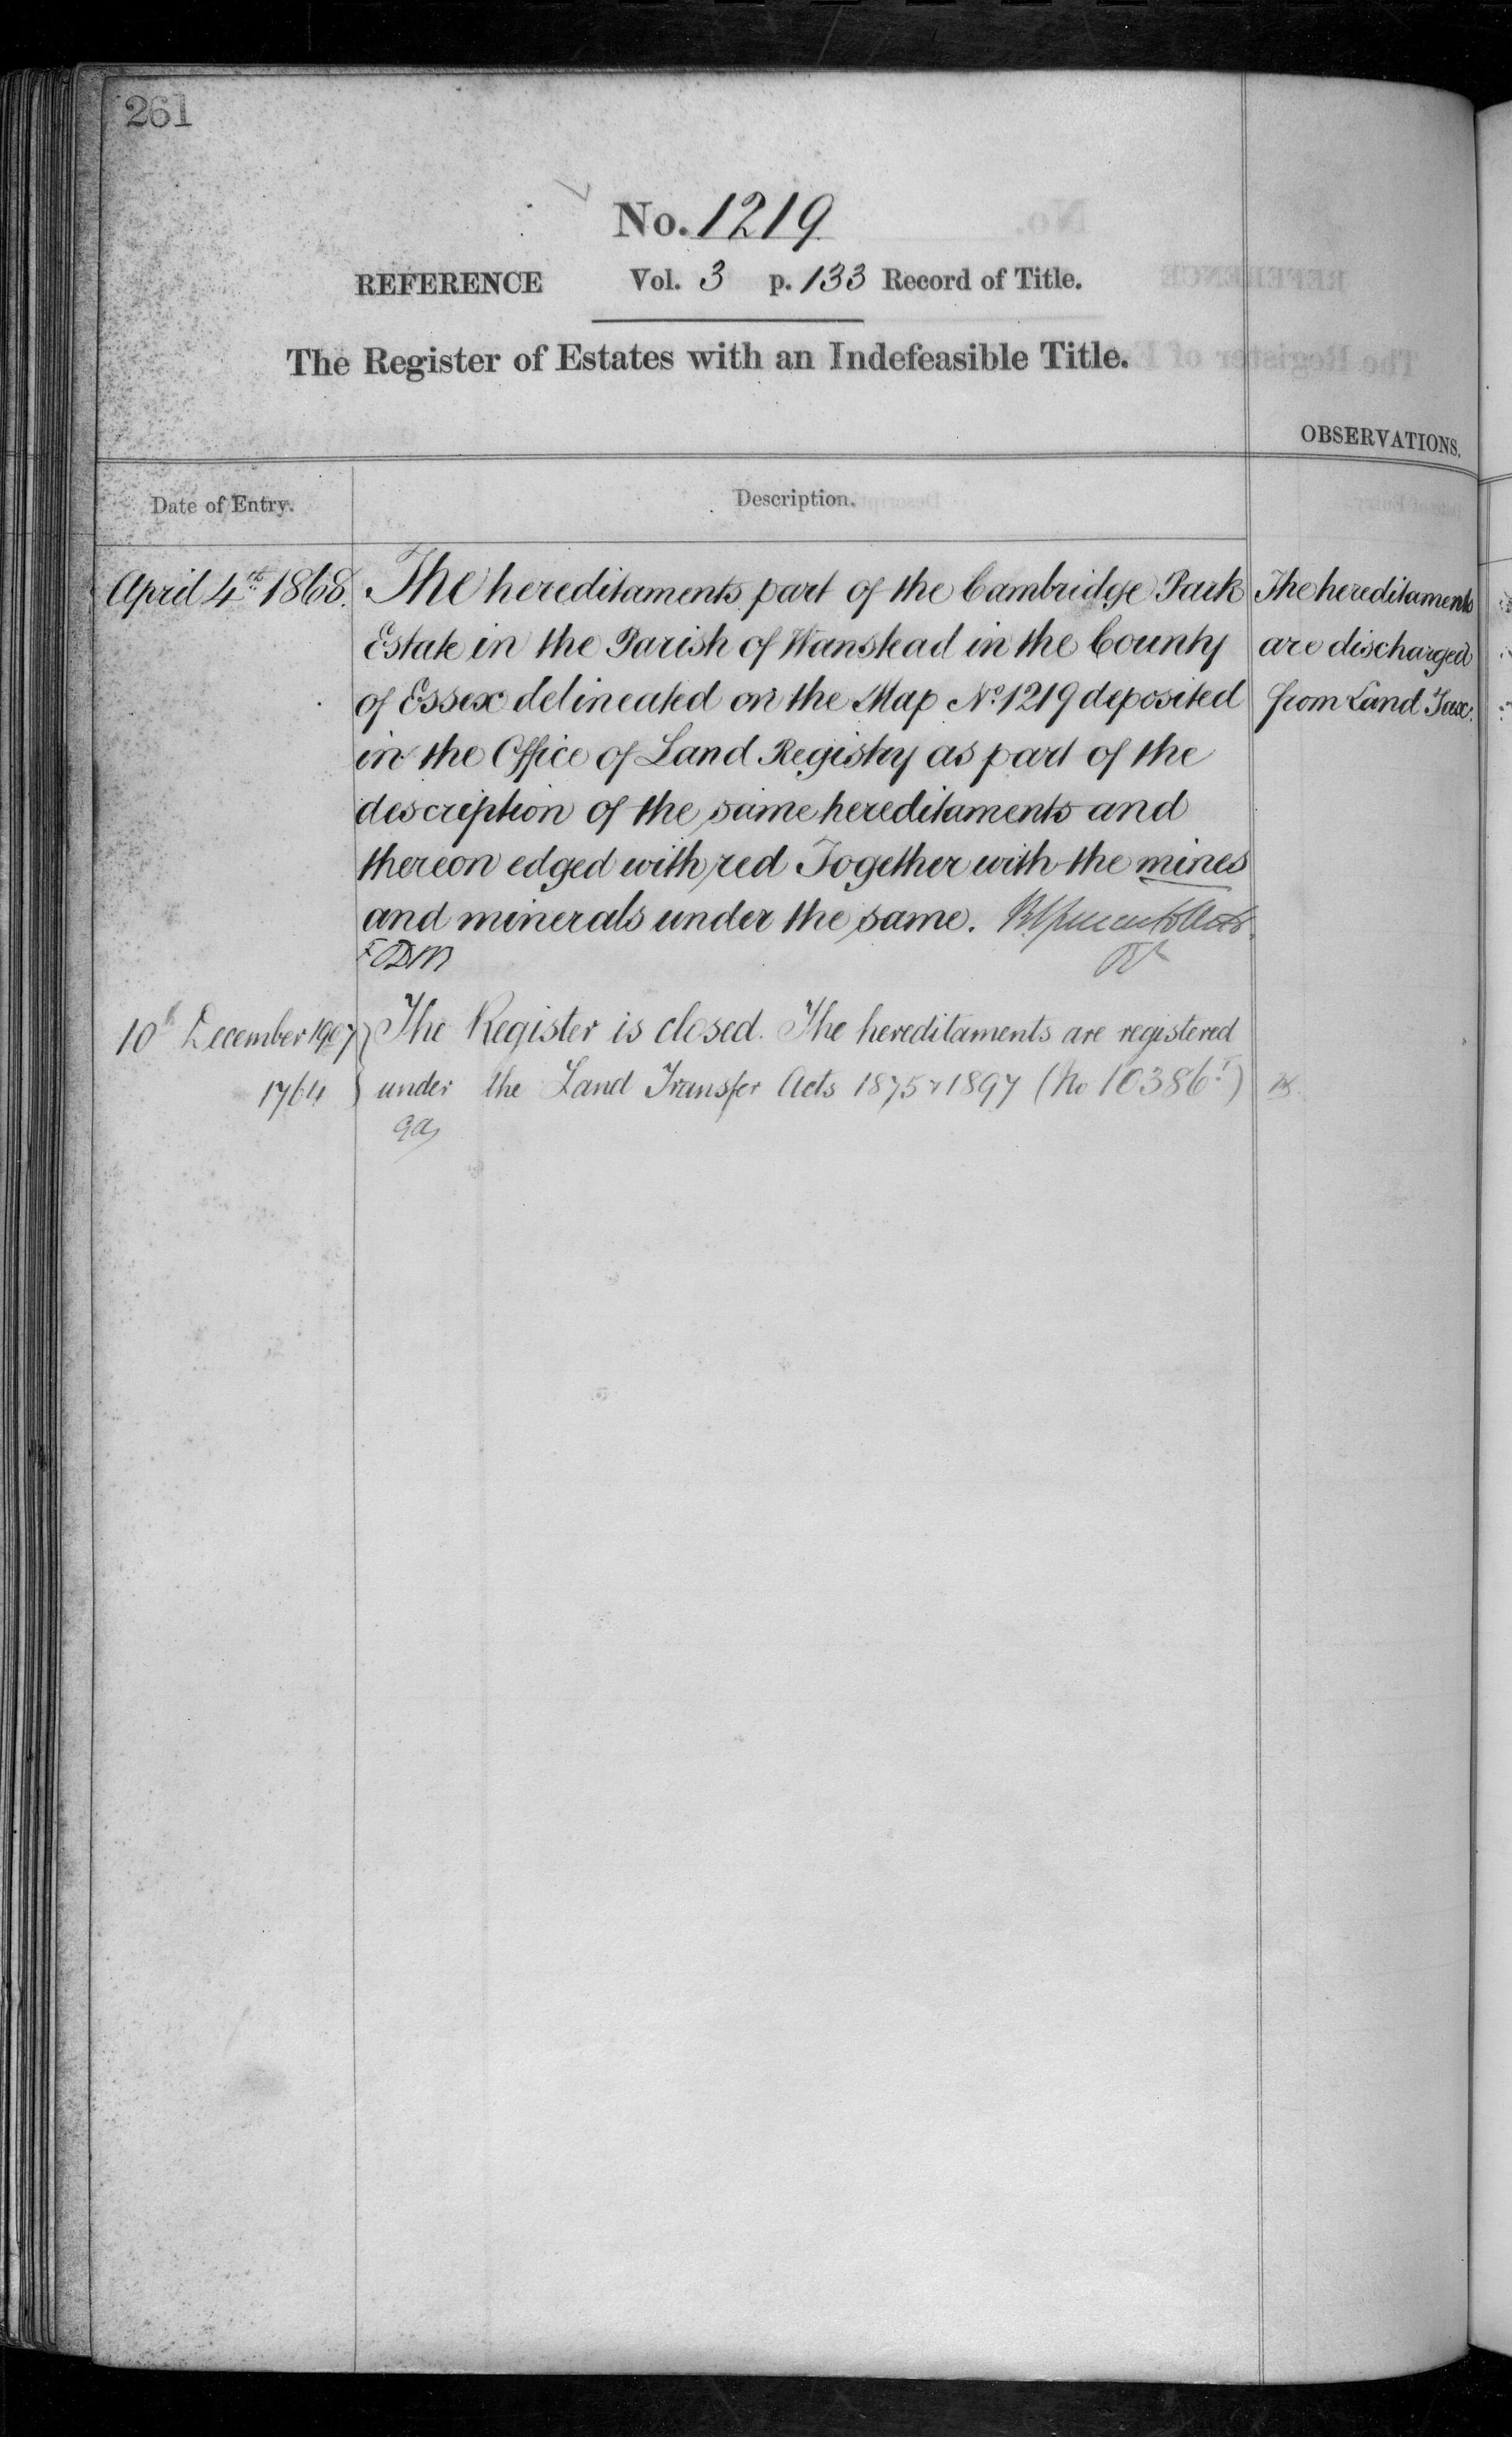 261
No. 1219
REFERENCE Vol. 3 p. 133 Record of Title.
The Register of Estates with an Indefeasible Title.
OBSERVATIONS.
Date of Entry.
Description.
April 4th 1868.
The hereditaments part of the Cambridge Park
Estate in the Parish of Wanstead in the County
of Essex delineated on the Map No. 1219 deposited
in the Office of Land Registry as part of the
description of the same hereditaments and
thereon edged with red Together with the mines
and minerals under the same.
The hereditaments
are discharged
from Land Tax.
10th December 1907
1764
The Register is closed. The hereditaments are registered
under the Land Transfer Acts 1875 & 1897 (No 103861)